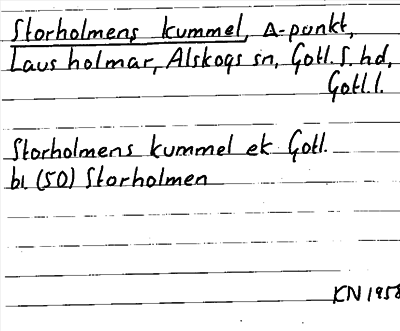 Storholmens kummel, Δ-punkt,
Laus holmar, Alskogs sn, Gotl. S. hd,
Gotl. l.
Storholmens kummel ek Gotl.
bl (50) Storholmen
KN 1958